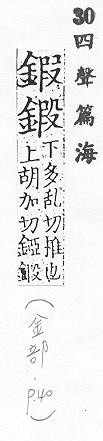 30 四聲篇海
鍜鍛
下多乱切推也
上胡加切錏鍜
(金部.p40)